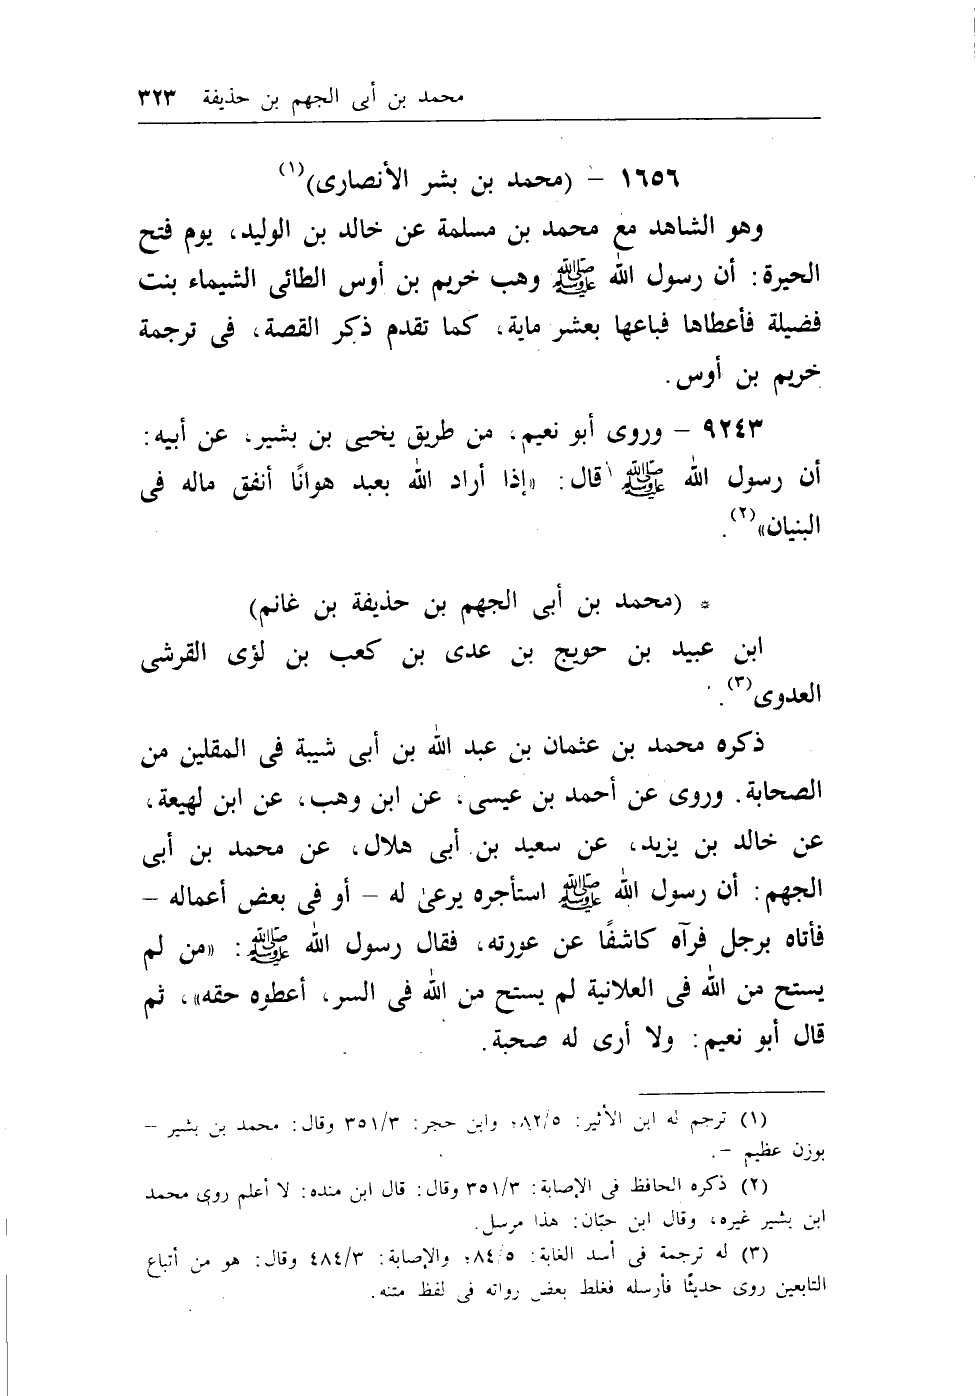 محمد بن أبى الجهم بن حذيفة ٣٢٣
١٦٥٦ – (محمد بن بشر الأنصارى)(١)
وهو الشاهد مع محمد بن مسلمة عن خالد بن الوليد، يوم فتح
الحيرة: أن رسول الله ﷺ وهب خريم بن أوس الطائى الشيماء بنت
فضيلة فأعطاها فباعها بعشر ماية، كما تقدم ذكر القصة، فى ترجمة
خريم بن أوس.
٩٢٤٣ – وروى أبو نعيم، من طريق يحيى بن بشير، عن أبيه:
أن رسول الله ﷺ قال: «إذا أراد الله بعبد هوانًا أنفق ماله فى
البنيان»(٢).
* (محمد بن أبى الجهم بن حذيفة بن غانم)
ابن عبيد بن حويج بن عدى بن كعب بن لؤى القرشى
العدوى(٣).
ذكره محمد بن عثمان بن عبد الله بن أبى شيبة فى المقلين من
الصحابة. وروى عن أحمد بن عيسى، عن ابن وهب، عن ابن لهيعة،
عن خالد بن يزيد، عن سعيد بن أبى هلال، عن محمد بن أبى
الجهم: أن رسول الله ﷺ استأجره يرعىٰ له – أو فى بعض أعماله –
فأتاه برجل فرآه كاشفًا عن عورته، فقال رسول الله ﷺ: «من لم
يستح من الله فى العلانية لم يستح من الله فى السر، أعطوه حقه»، ثم
قال أبو نعيم: ولا أرى له صحبة.
(١) ترجم له ابن الأثير: ٨٢/٥؛ وابن حجر: ٣٥١/٣ وقال: محمد بن بشير –
بوزن عظيم –.
(٢) ذكره الحافظ فى الإصابة: ٣٥١/٣ وقال: قال ابن منده: لا أعلم روى محمد
ابن بشير غيره، وقال ابن حبّان: هذا مرسل.
(٣) له ترجمة فى أسد الغابة: ٨٤/٥؛ والإصابة: ٤٨٤/٣ وقال: هو من أتباع
التابعين روى حديثًا فأرسله فغلط بعض رواته فى لفظ متنه.